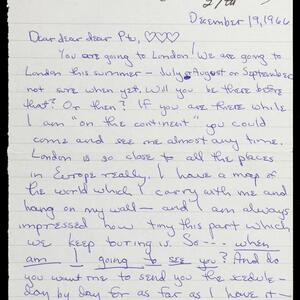 27th
December 19, 1966
Dear dear dear Ptu, ♡♡♡
You are going to London! We are going to
London this summer — July or August or September
not sure when yet. Will you be there before
that? Or then? If you are there while
I am "on the continent" you could
come and see me almost any time.
London is so close to all the places
in Europe really. I have a map of
the world which I carry with me and
hang on my wall — and I am always
impressed how tiny this part which
we keep touring is. So --- when
am I going to see you? And do
you want me to send you the scedule —
day by day for as far as I have it —